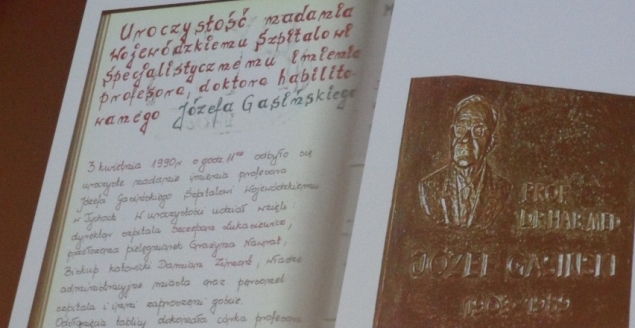 Uroczystość nadania
Wojewódzkiemu Szpitalowi
Specjalistycznemu imienia
profesora, doktora habilito-
wanego Józefa Gasińskiego
3 kwietnia 1990r o godz. 11ºº odbyło się
uroczyste nadanie imienia profesora
Józefa Gasińskiego Szpitalowi Wojewódzkiemu
w Tychach. W uroczystości udział wzięli:
dyrektor szpitala Szczepan Łukasiewicz,
przełożona pielęgniarek Grażyna Nawrat,
Biskup katowicki Damian Zimoń, władze
administracyjne miasta oraz personel
szpitala i inni zaproszeni goście.
Odsłonięcia tablicy dokonała córka profesora
PROF.
DR HAB. MED
JÓZEF GASIŃSKI